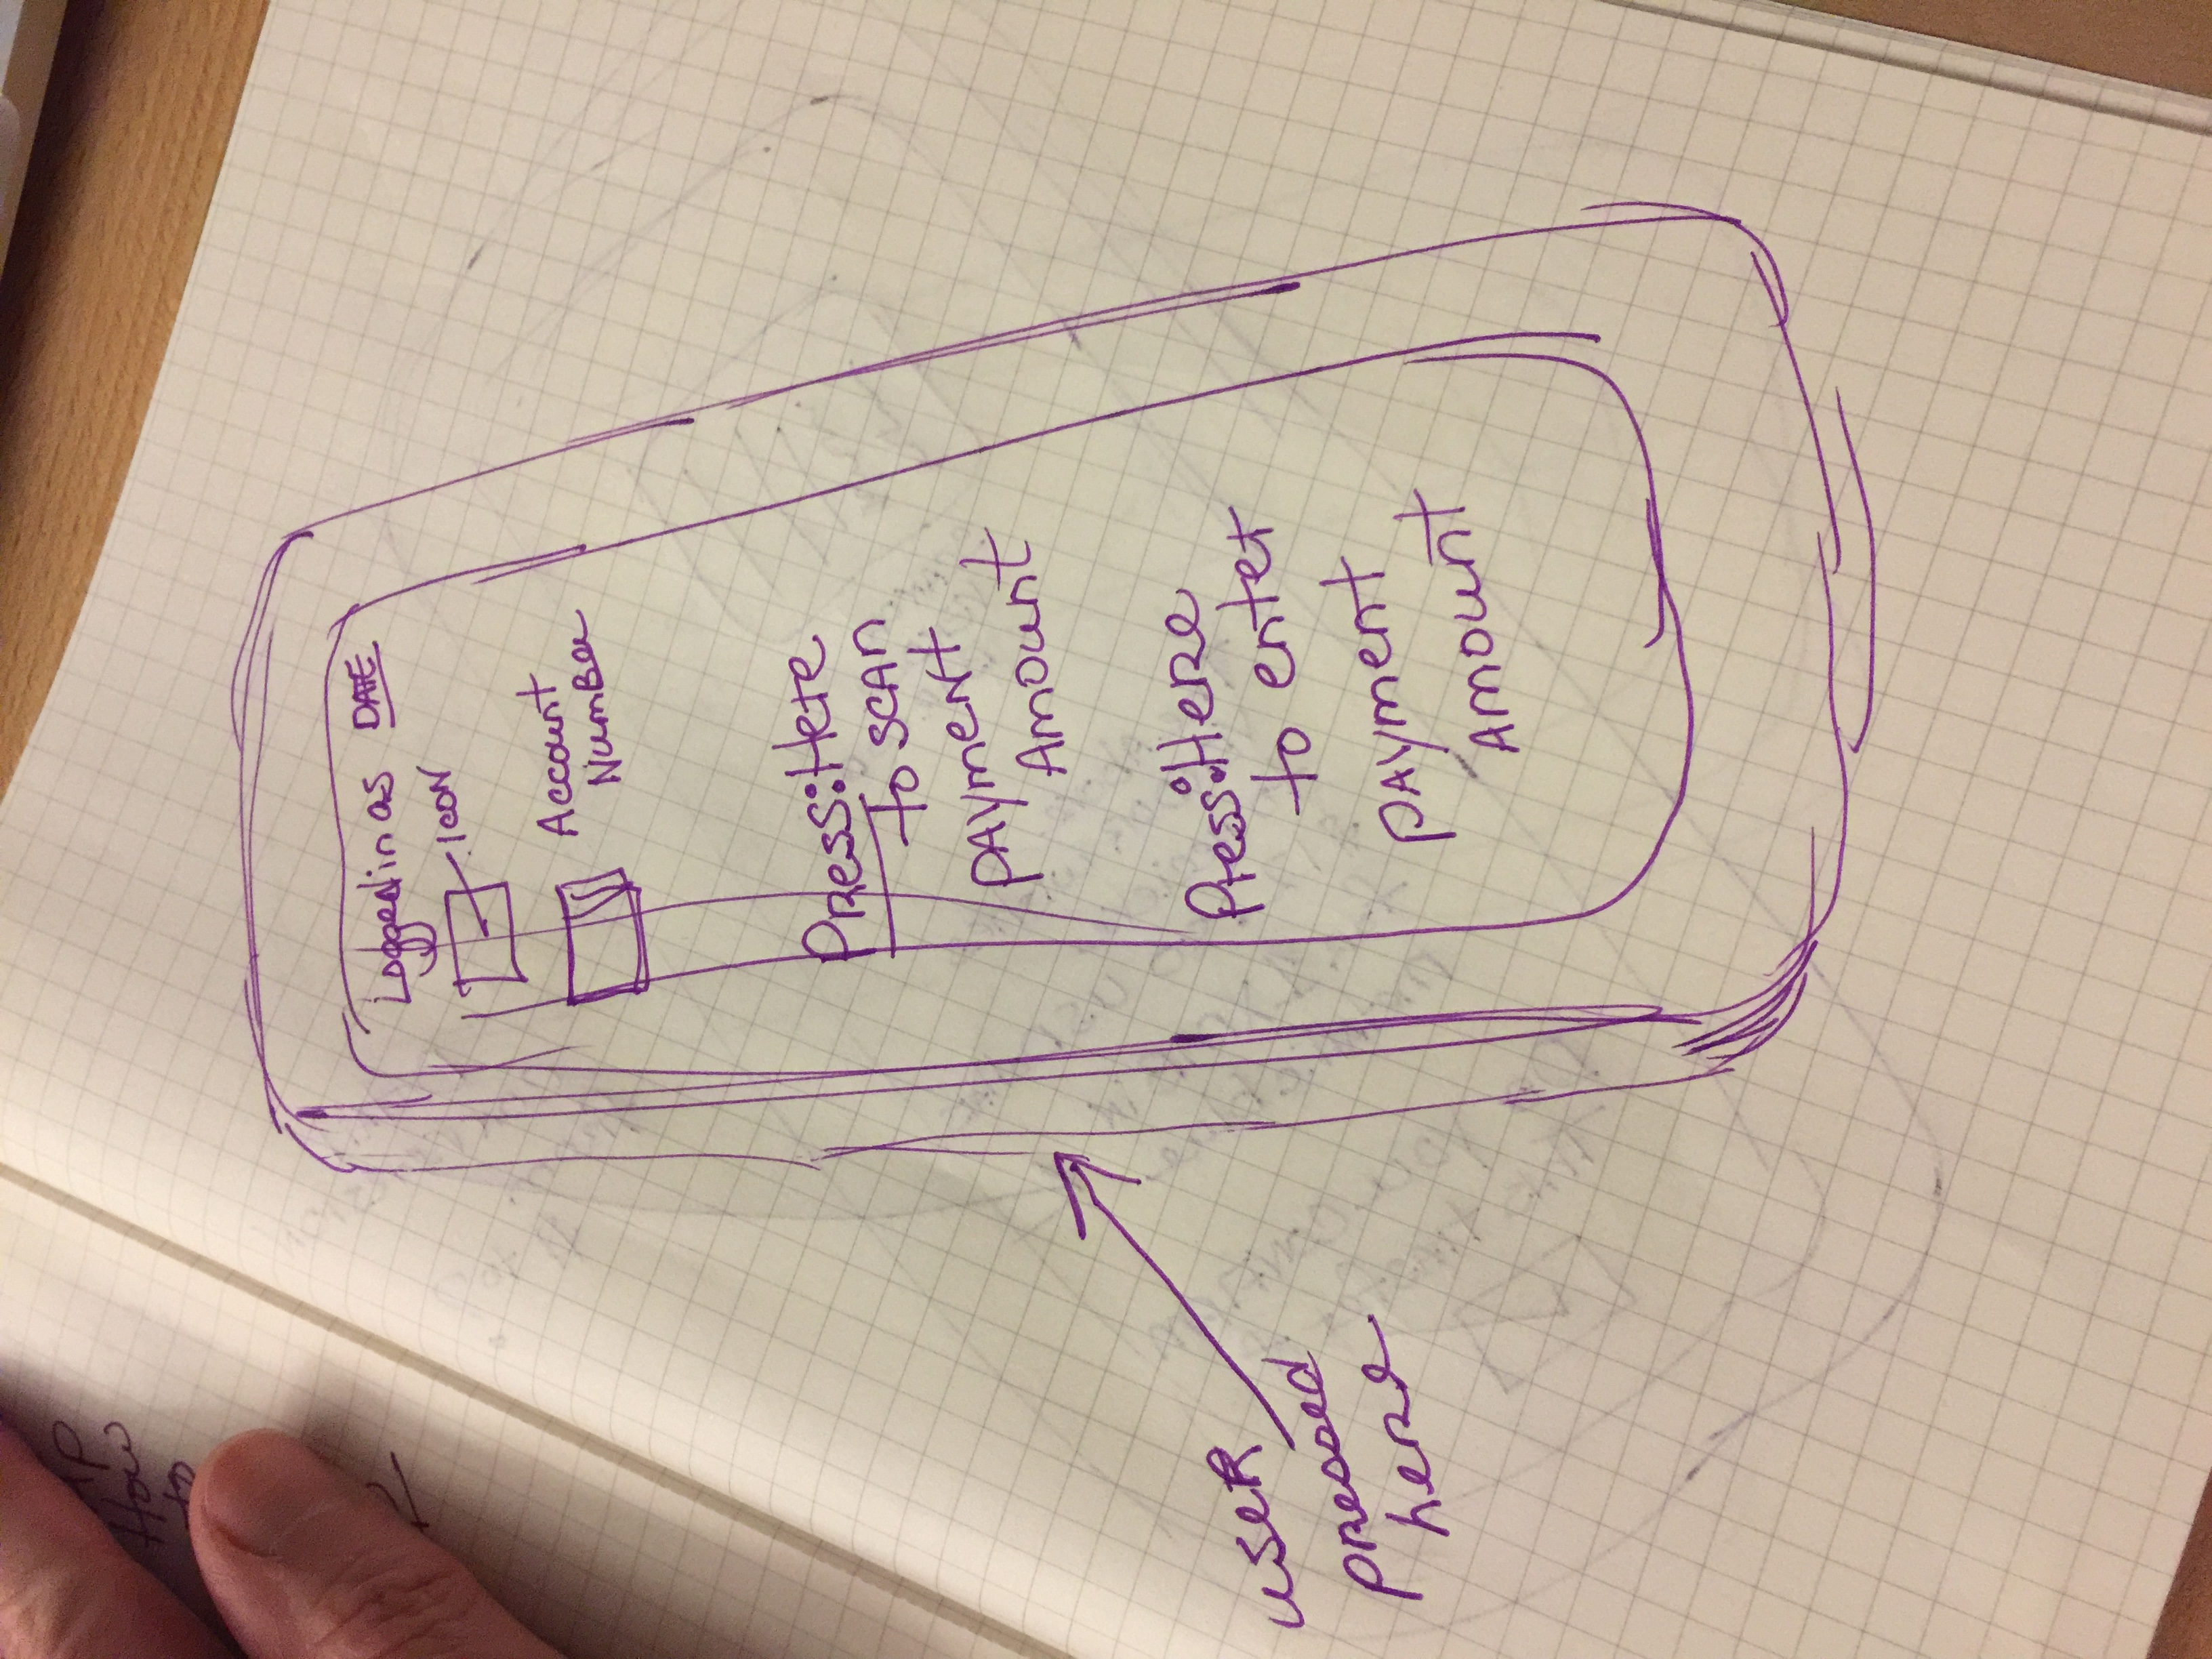 How
to
Logged in as DATE
ICON
Account
Number
Press:Here
to scan
payment
Amount
Press:Here
to enter
payment
Amount
user
pressed
here